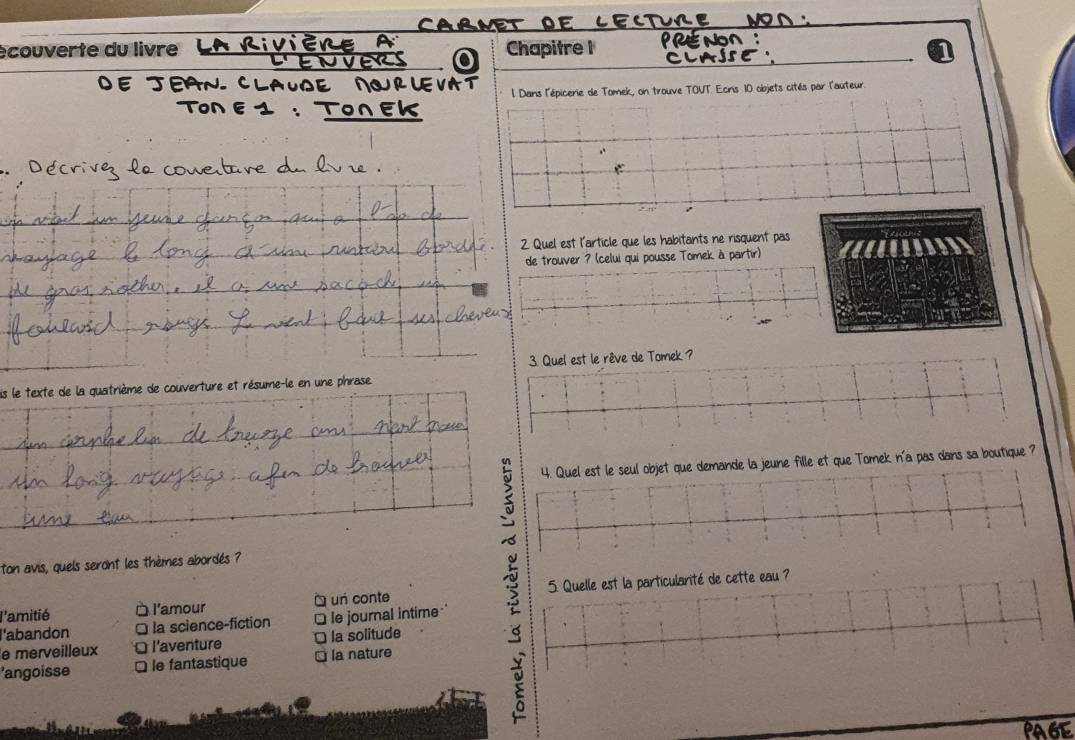 CARNET DE LECTURE NOM:
écouverte du livre LA RIVIÈRE À
L'ENVERS
0
DE JEAN-CLAUDE MOURLEVAT
TOME 1 : TOMEK
. Décrivez la couverture du livre.
on voit un jeune garçon qui a l'air de
voyage le long d'une
de gros rocher. il a une sacoche un
foulard rouge le vent faut ses cheveux
is le texte de la quatrième de couverture et résume-le en une phrase
de treize ans
un long voyage afin de trouver
une eau
ton avis, quels seront les thèmes abordés ?
l'amitié
l'amour
un conte
l'abandon
la science-fiction
le journal intime
e merveilleux
l'aventure
la solitude
'angoisse
le fantastique
la nature
Tomek, La rivière à l'envers
Chapitre 1
PRÉNOM :
CLASSE :
1
1. Dans l'épicerie de Tomek, on trouve TOUT. Ecris 10 objets cités par l'auteur.
2. Quel est l'article que les habitants ne risquent pas
de trouver ? (celui qui pousse Tomek à partir)
3. Quel est le rêve de Tomek ?
4. Quel est le seul objet que demande la jeune fille et que Tomek n'a pas dans sa boutique ?
5. Quelle est la particularité de cette eau ?
PAGE